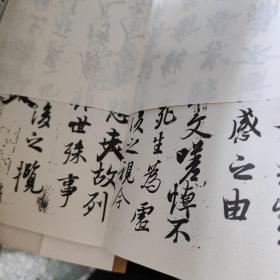 感之由
文嗟悼不
死生為虛
後之視今
悲夫故列
世殊事
後之攬